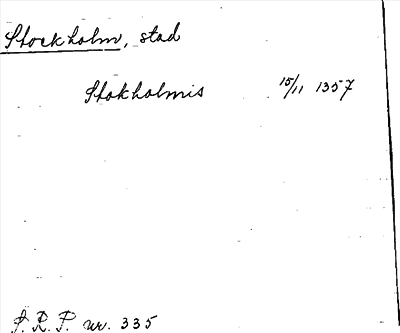 Stockholm, stad
Stokholmis 15/11 1357
S. R. P. nr. 335